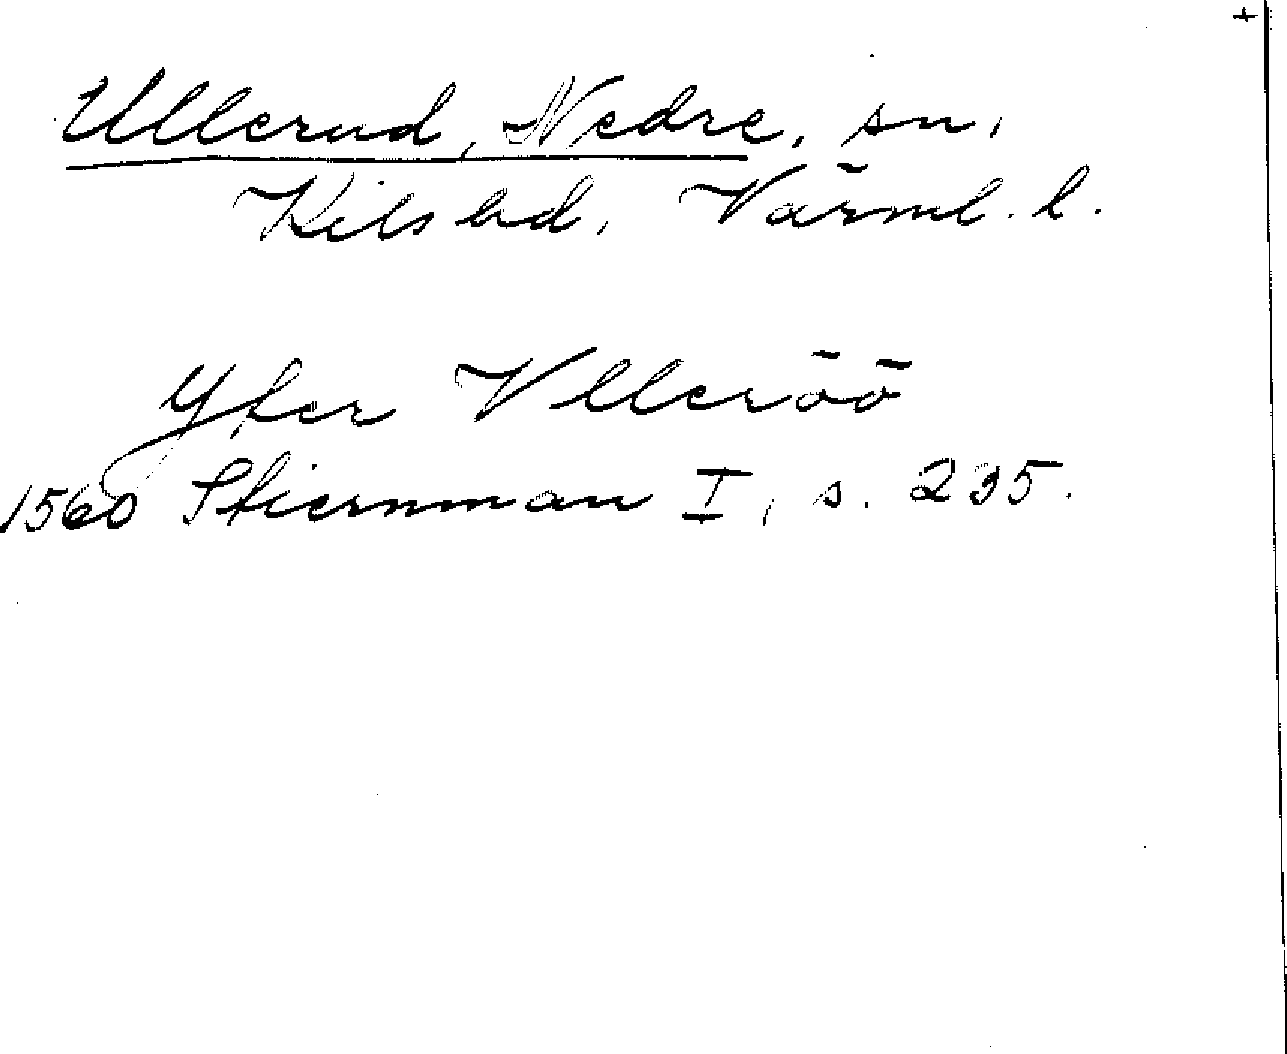 +
Ullerud, Nedre, sn,
Kils hd, Värml. l.
Yfer Vlleröö
1560 Stiernman I, s. 235.